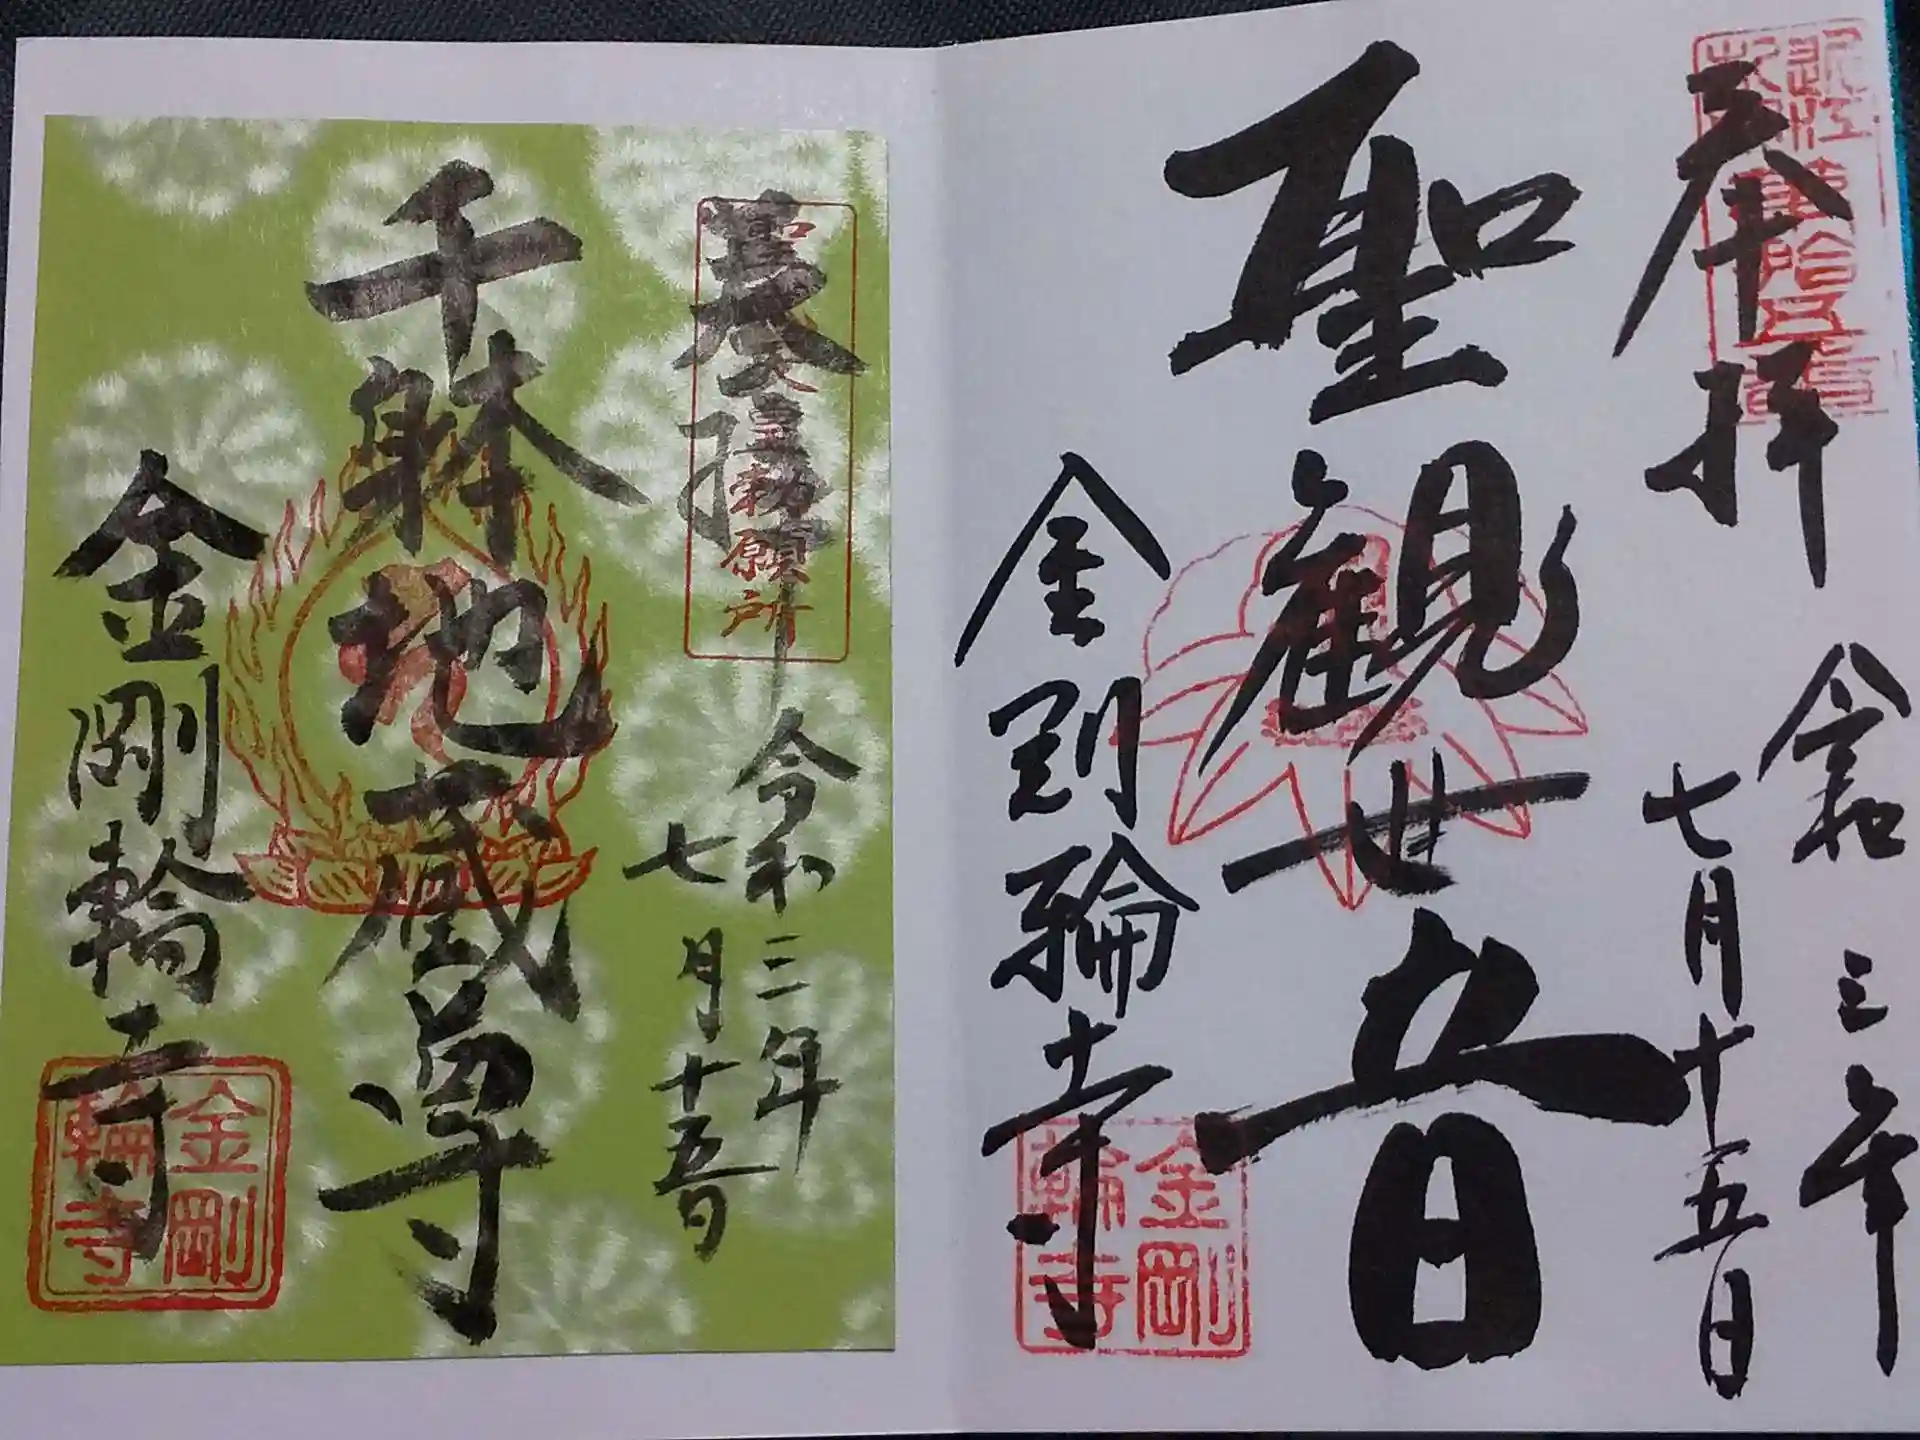 奉拝
令和三年
七月十五日
聖観世音
金剛輪寺
金剛
輪寺
奉拝
聖武天皇勅願所
令和三年
七月十五日
千躰地蔵尊
金剛輪寺
金剛
輪寺